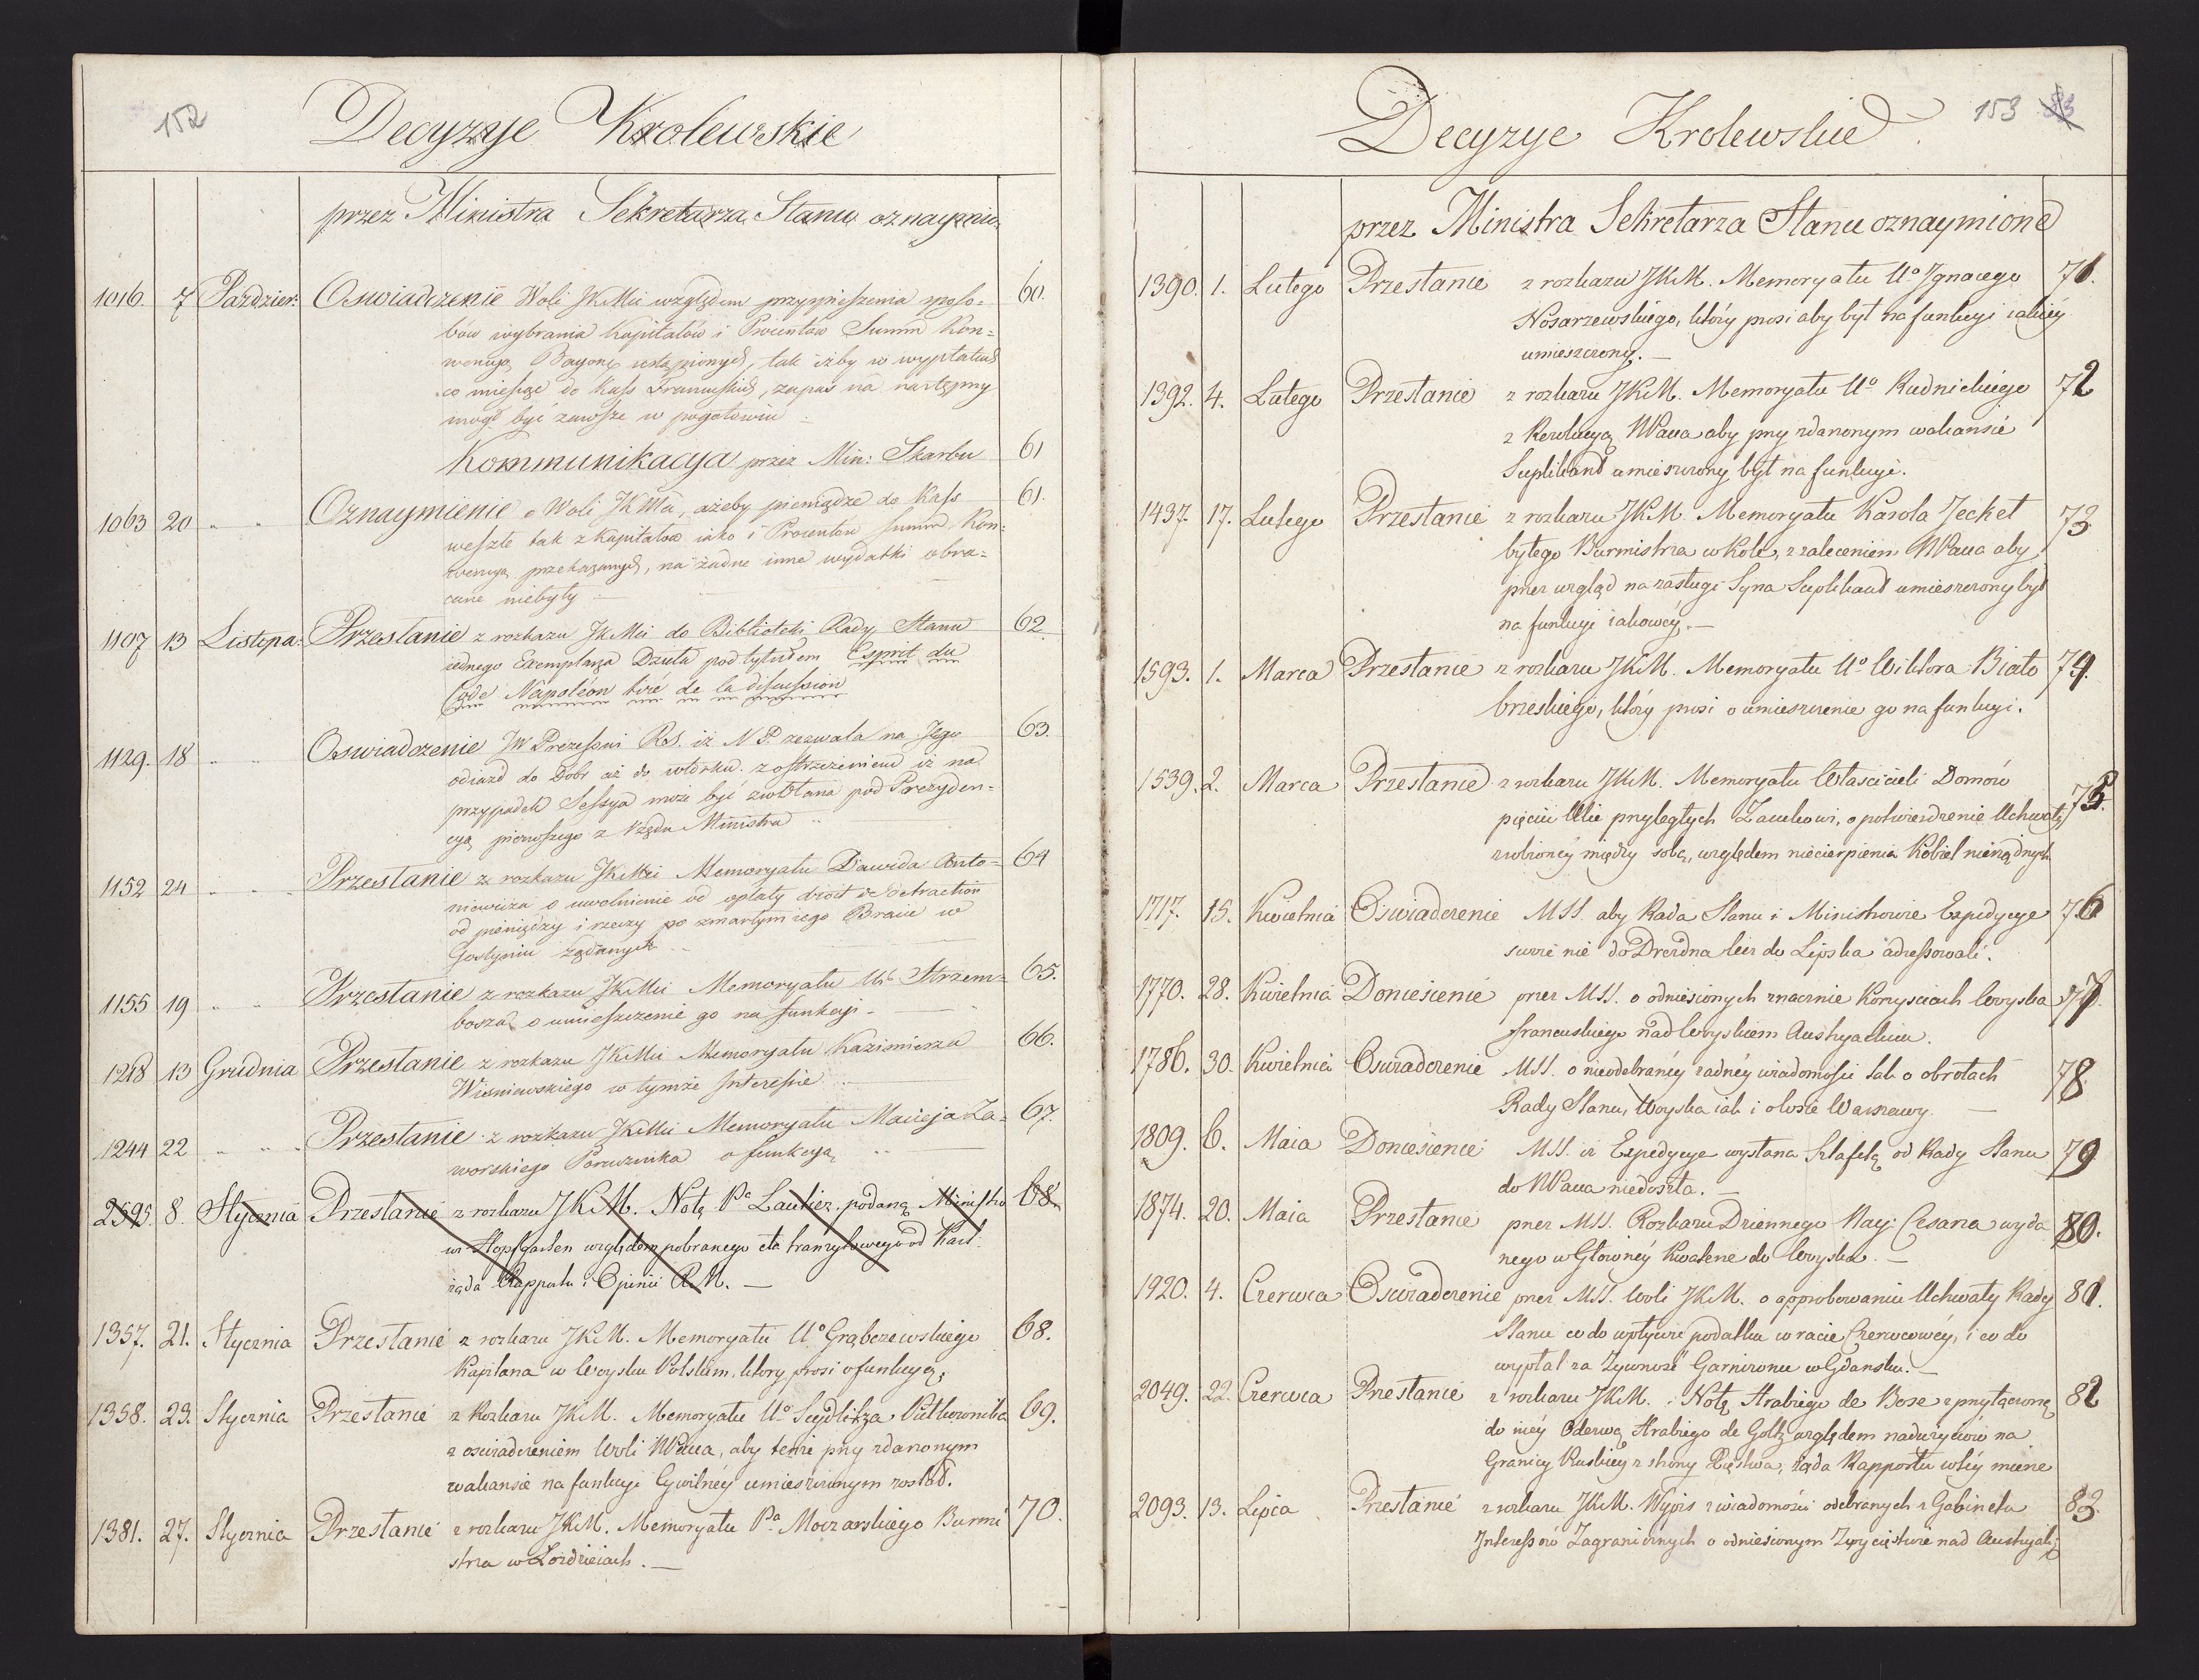 152
Decyzye Krolewskie
przez Ministra Sekretarza Stanu oznaymio:
1016. 7 Pazdzier: Oswiadczenie Woli JKMci względem przyspieszenia sposo= 60.
bów wybrania Kapitałów i Procentów Summ Kon=
wencyą Bayonę ustąpionych, tak iżby w wypłatach
co miesiąc do Kass Francuskich, zapas na następny
mógł być zawsze w pogotowiu
Kommunikacya przez Min: Skarbu 61
1063 20 " " Oznaymienie o Woli JKMci, ażeby pieniądze do Kass 61.
weszłe tak z Kapitałów iako i Procentów Summ Kon=
wencyą przekazanych, na żadne inne wydatki obra=
cane niebyły
1107 13 Listopa: Przesłanie z rozkazu JKMci do Biblioteki Rady Stanu 62.
iednego Exemplarza Dzieła pod tytułem Esprit du
Code Napoléon tiré de la discussion
1129. 18 " " Oswiadczenie JW Prezesowi RS. iż N P. zezwala na Jego 63.
odiazd do Dobr aż do wtorku. z ostrzeżeniem iż na
przypadek Sessya może być zwołana pod Prezyden=
cyą pierwszego z Rzędu Ministra
1152 24 " " Przesłanie z rozkazu JKMci Memoryału Dawida Anto= 64
niewicza o uwolnienie od opłaty droit de detraction
od pieniędzy i rzeczy po zmarłym iego Bracie w
Gostyniu żądanych
1155 19 " " Przesłanie z rozkazu JKMci Memoryału Ur Strzem= 65.
bosza, o umieszczenie go na funkcyi
1218 13 Grudnia Przesłanie z rozkazu JKMci Memoryału Kazimierza 66.
Wisniewskiego w tymże Interessie
1244 22 " " Przesłanie z rozkazu JKMci Memoryału Macieja Za= 67.
worskiego Porucznika o funkcyą
2595. 8. Stycznia Przesłanie z rozkazu JKM. Notę Pa Laukier. podaną Ministro 68.
wi Hopfgarten względem pobranego cła tranzytowego od Kart.
żąda Rapportu i Opinii R.M. —
1357. 21. Stycznia Przesłanie z rozkazu JKM. Memoryału Uo Grąbczewskiego 68.
Kapitana w Woysku Polskim, ktory prosi o funkcyą,
1358. 23. Stycznia Przesłanie z Rozkazu JKM. Memoryału Uo Seydlitza Pułkownika 69.
z oswiadczeniem Woli NPana, aby tenże przy zdarzonym
wakansie na funkcyi Cywilnéy umieszczonym został.
1381. 27. Stycznia Przesłanie z rozkazu JKM. Memoryału Pa Moczarskiego Burmi 70.
strza w Łozdzieiach. —
153 83
Decyzye Krolewskie
przez Ministra Sekretarza Stanu oznaymione
1390. 1. Lutego Przesłanie z rozkazu JKM. Memoryału Uo Ignacego 71.
Nosarzewskiego, który prosi aby był na funkcyi iakiéy
umieszczony. —
1392. 4. Lutego Przesłanie z rozkazu JKM. Memoryału Uo Rudnickiego 72
z Rezolucyą NPana aby przy zdarzonym wakansie
Suplikant umieszczony był na funkcyi.
1437. 17. Lutego Przesłanie z rozkazu JKM Memoryału Karola Jeckel 73
byłego Burmistrza w Kole, z zaleceniem NPana aby
przez wzgląd na zasługi Syna Suplikant umieszczony był
na funkcyi iakowéy. —
1593. 1. Marca Przesłanie z rozkazu JKM. Memoryału Uo Wiktora Biało 74.
brzeskiego, który prosi o umieszczenie go na funkcyi.
1539. 2. Marca Przesłanie z rozkazu JKM. Memoryału Własścicieli Domów 75.
pięciu Ulic przyległych Zamkowi, o potwierdzenie Uchwały
zrobionéy między sobą, względem niecierpienia Kobiet nierządnych
1717. 15. Kwietnia Oswiadczenie MSS. aby Rada Stanu i Ministrowie Expedycye 76
swoie nie do Drezdna lecz do Lipska adressowali.
1770. 28. Kwietnia Doniesienie przez MSS. o odniesionych znacznie Korzysciach Woyska 77.
francuskiego nad Woyskiem Austryackim.
1786. 30. Kwietnia Oswiadczenie MSS. o nieodebranéy żadnéy wiadomości tak o obrotach 78.
Rady Stanu, Woyska iak i o losie Warszawy. —
1809. 6. Maia Doniesienie MSS. iż Expedycye wysłana Sztafetą od Rady Stanu 79
do NPana niedoszła. —
1874. 20. Maia Przesłanie przez MSS. Rozkazu Dziennego Nay: Cesarza wyda 80.
nego w Głównéy Kwaterze do Woyska. —
1920. 4. Czerwca Oswiadczenie przez MSS. Woli JKM. o approbowaniu Uchwały Rady 81.
Stanu co do wpływu podatku w racie Czerwcowéy, i co do
wypłat za Żywność Garnizonu w Gdansku. —
2049. 22. Czerwca Przesłanie z rozkazu JKM. Notę Hrabiego de Bose z przyłączoną 82
do niéy Odezwą Hrabiego de Goltz względem nadużyciów na
Granicy Ruskiey z strony Xięstwa, żąda Rapportu w téy mierze
2093. 13. Lipca Przesłanie z rozkazu JKM. Wypis z wiadomości odebranych z Gabinetu 83.
Interessow Zagranicznych o odniesionym Zwycięstwie nad Austryaki